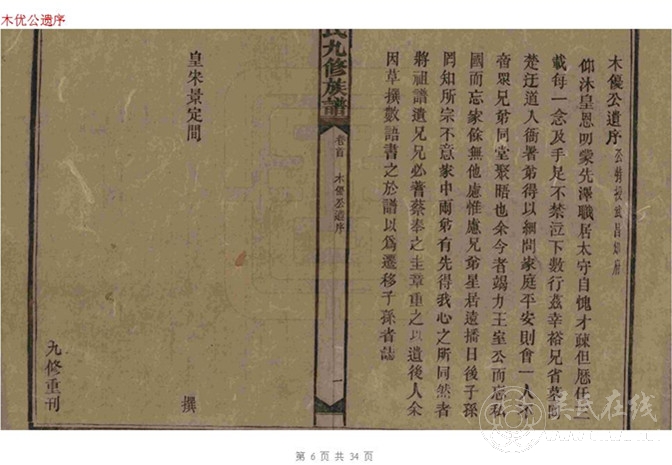 木优公遗序
木優公遺序 公特授武昌知府
仰沐皇恩叨蒙先澤職居太守自愧才疎但厯任三
載每一念及手足不禁泣下數行茲幸裕兄省墓
楚迂道入衙署弟得以細問家庭平安則會一人不
啻眾兄弟同堂聚晤也余今者竭力王室公而忘私
國而忘家餘無他慮惟慮兄弟星居遠播日後子孫
罔知所宗不意家中兩弟有先得我心之所同然者
將祖譜遺兄兄必蓍蔡奉之圭章重之以遺後人余
因草撰數語書之於譜以爲遷移子孫者誌
氏九修族譜
卷首 木優公遺序
一
皇宋景定間
撰
九修重刊
吴氏在线
第 6 页 共 34 页